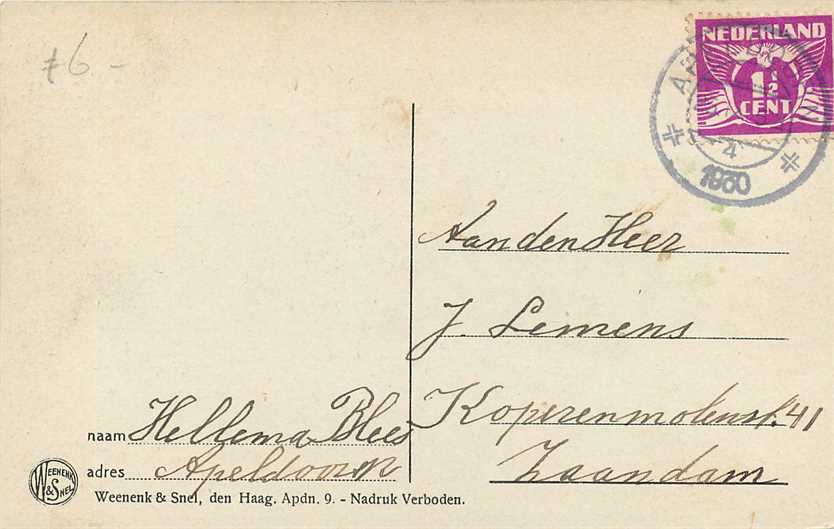 ƒ6.-
NEDERLAND
1½
CENT
4
1930
Aan den Heer
J. Lemens
Koperenmolenst. 41
Zaandam
naam Hellema Blees
adres Apeldoorn
WEENENK & SNEL
Weenenk & Snel, den Haag. Apdn. 9. - Nadruk Verboden.